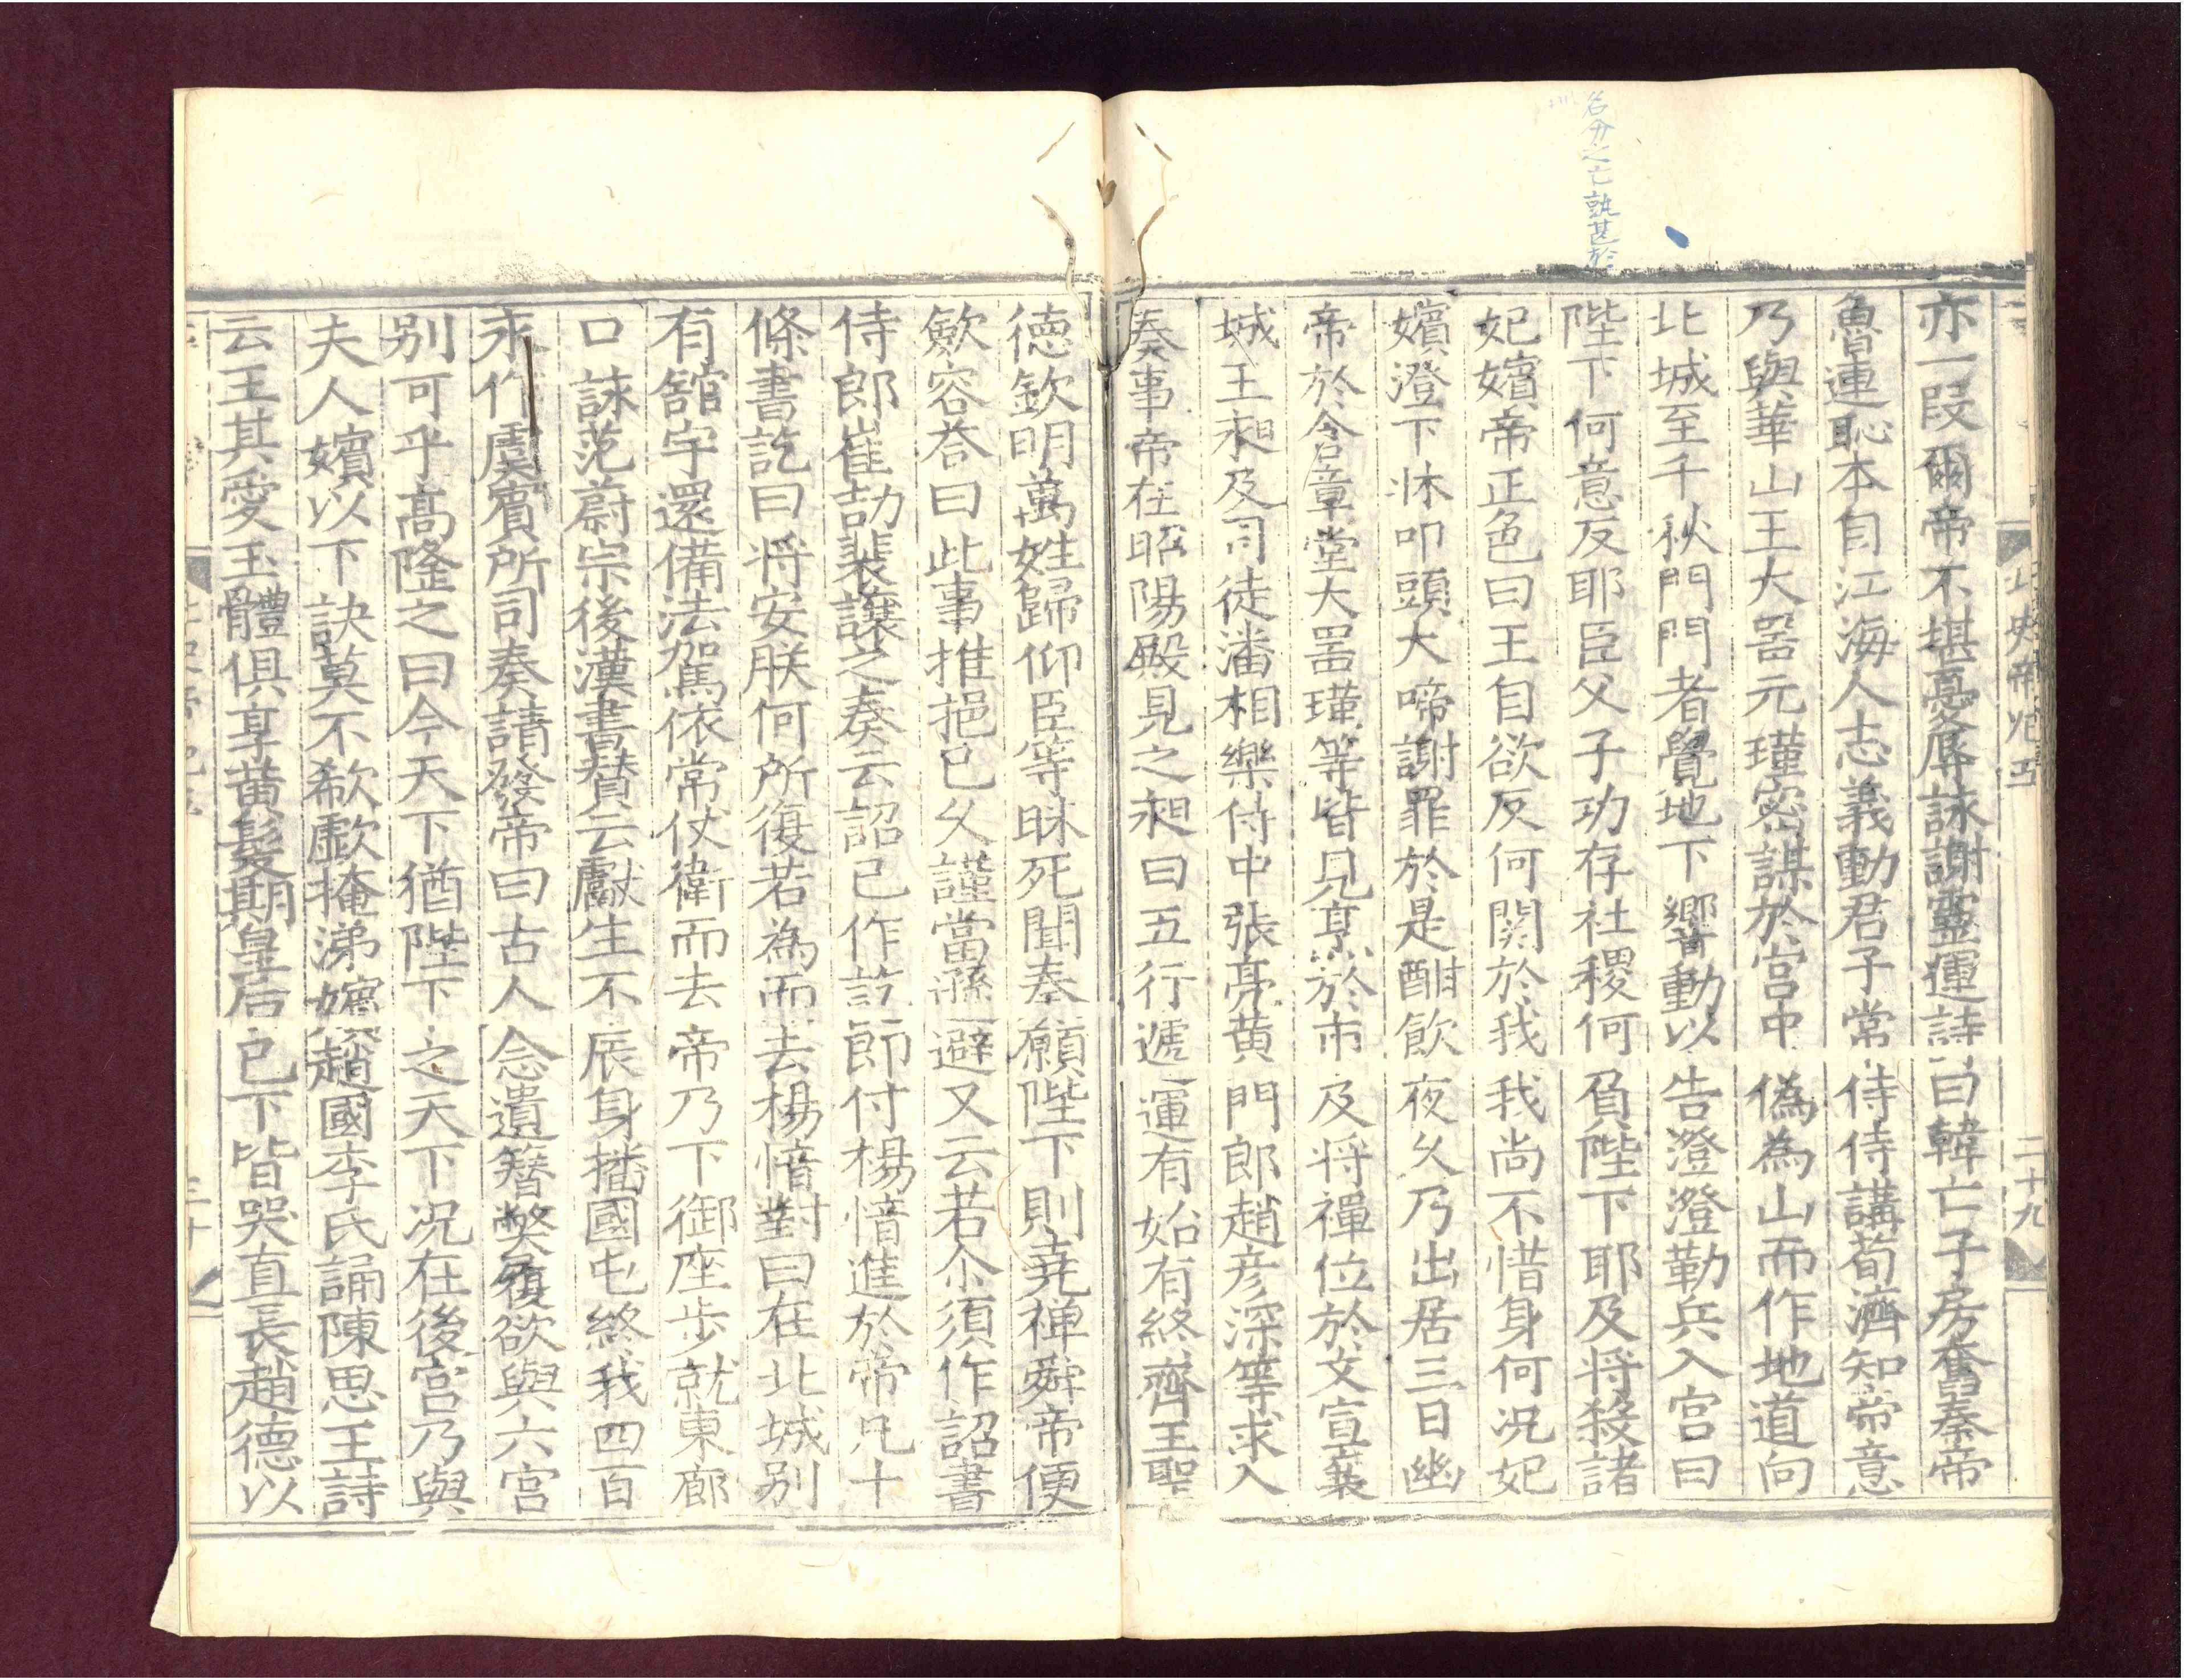 名分之亡孰甚於
北史帝紀五
二十九
亦一段爾帝不堪憂辱詠謝靈運詩曰韓亡子房奮秦帝
魯連恥本自江海人志義動君子常侍侍講荀濟知帝意
乃與華山王大器元瑾密謀於宮中偽為山而作地道向
北城至千秋門門者覺地下響動以告澄澄勒兵入宮曰
陛下何意反耶臣父子功存社稷何負陛下耶及将殺諸
妃嬪帝正色曰王自欲反何関於我我尚不惜身何況妃
嬪澄下牀叩頭大啼謝罪於是酣飲夜久乃出居三日幽
帝於含章堂大器瑾等皆見烹於市及将禪位於文宣襄
城王昶及司徒潘相樂侍中張亮黄門郎趙彦深等求入
奏事帝在昭陽殿見之昶曰五行遞運有始有終齊王聖
德欽明萬姓歸仰臣等昧死聞奏願陛下則堯禅舜帝便
斂容荅曰此事推挹已久謹當遜避又云若尒須作詔書
侍郎崔劼裴讓之奏云詔已作訖即付楊愔進於帝凡十
條書訖曰将安朕何所復若為而去楊愔對曰在北城别
有舘宇還備法駕依常仗衛而去帝乃下御座歩就東廊
口詠范蔚宗後漢書賛云獻生不辰身播國屯終我四百
永作虞賓所司奏請發帝曰古人念遺簪獘履欲與六宮
别可乎高隆之曰今天下猶陛下之天下況在後宮乃與
夫人嬪以下訣莫不欷歔掩涕嬪趙國李氏誦陳思王詩
云王其愛玉體俱享黄髮期皇后已下皆哭直長趙德以
三十